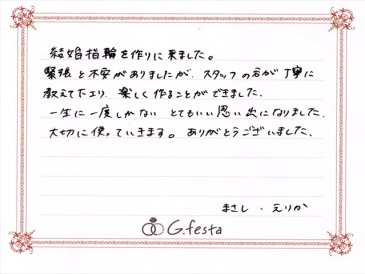 結婚指輪を作りに来ました。
緊張と不安がありましたが、スタッフの方が丁寧に
教えて下さり、楽しく作ることができました。
一生に一度しかない とてもいい思い出になりました。
大切に使っていきます。ありがとうございました。
まさし ・ えりか
G.festa